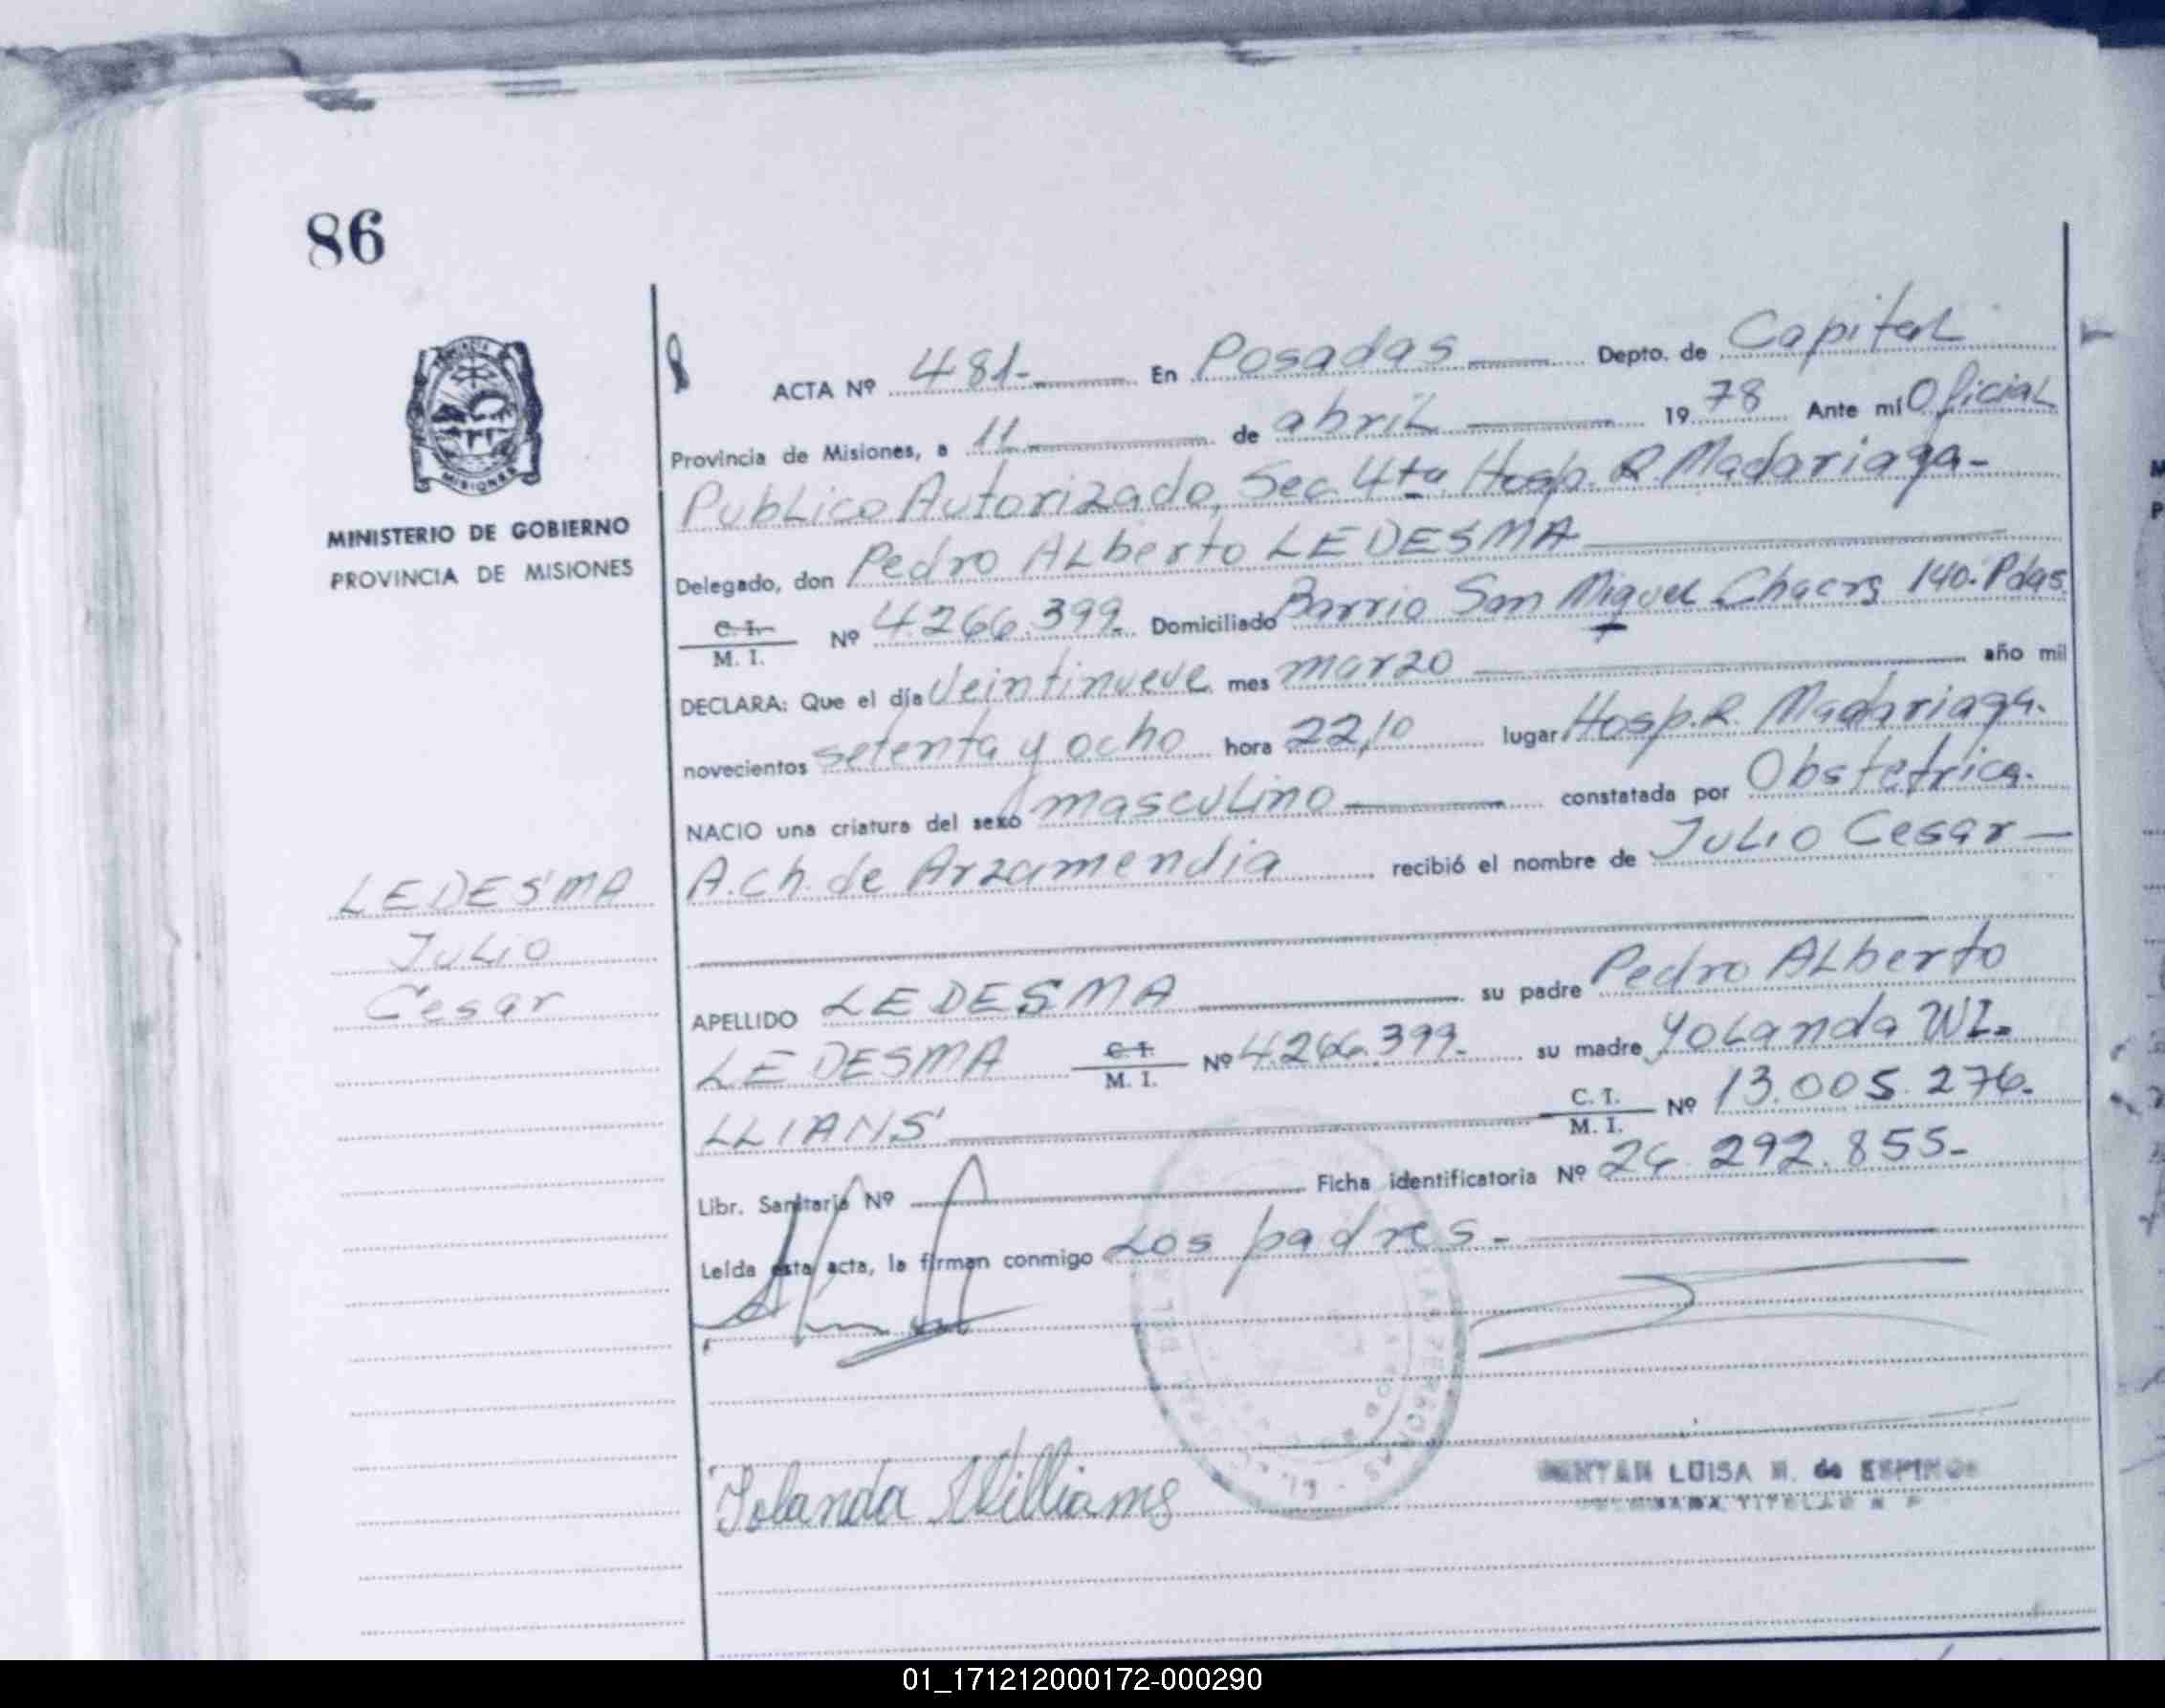 86
MISIONES
MINISTERIO DE GOBIERNO
PROVINCIA DE MISIONES
LEDESMA
Julio
Cesar
ACTA Nº 481.- En Posadas Depto. de Capital
Provincia de Misiones, a 11 de abril 1978 Ante mí Oficial
Publico Autorizado, Sec. 4ta Hosp. R. Madariaga-
Delegado, don Pedro Alberto LEDESMA
C. I. M. I. Nº 4.266.399. Domiciliado Barrio San Miguel Chacra 140. Pdas.
DECLARA: Que el día Veintinueve mes marzo año mil
novecientos setenta y ocho hora 22,10 lugar Hosp. R. Madariaga.
NACIO una criatura del sexo masculino constatada por Obstetrica.
A. Ch. de Arzamendia recibió el nombre de Julio Cesar
APELLIDO LEDESMA su padre Pedro Alberto
LEDESMA C. I. M. I. Nº 4.266.399.- su madre Yolanda WI-
LLIANS C. I. M. I. Nº 13.005.276.
Libr. Sanitaria Nº Ficha identificatoria Nº 26.292.855-
Leída esta acta, la firman conmigo Los padres.-
Yolanda Williams
LUISA N. de ESPINOSA
01_171212000172-000290